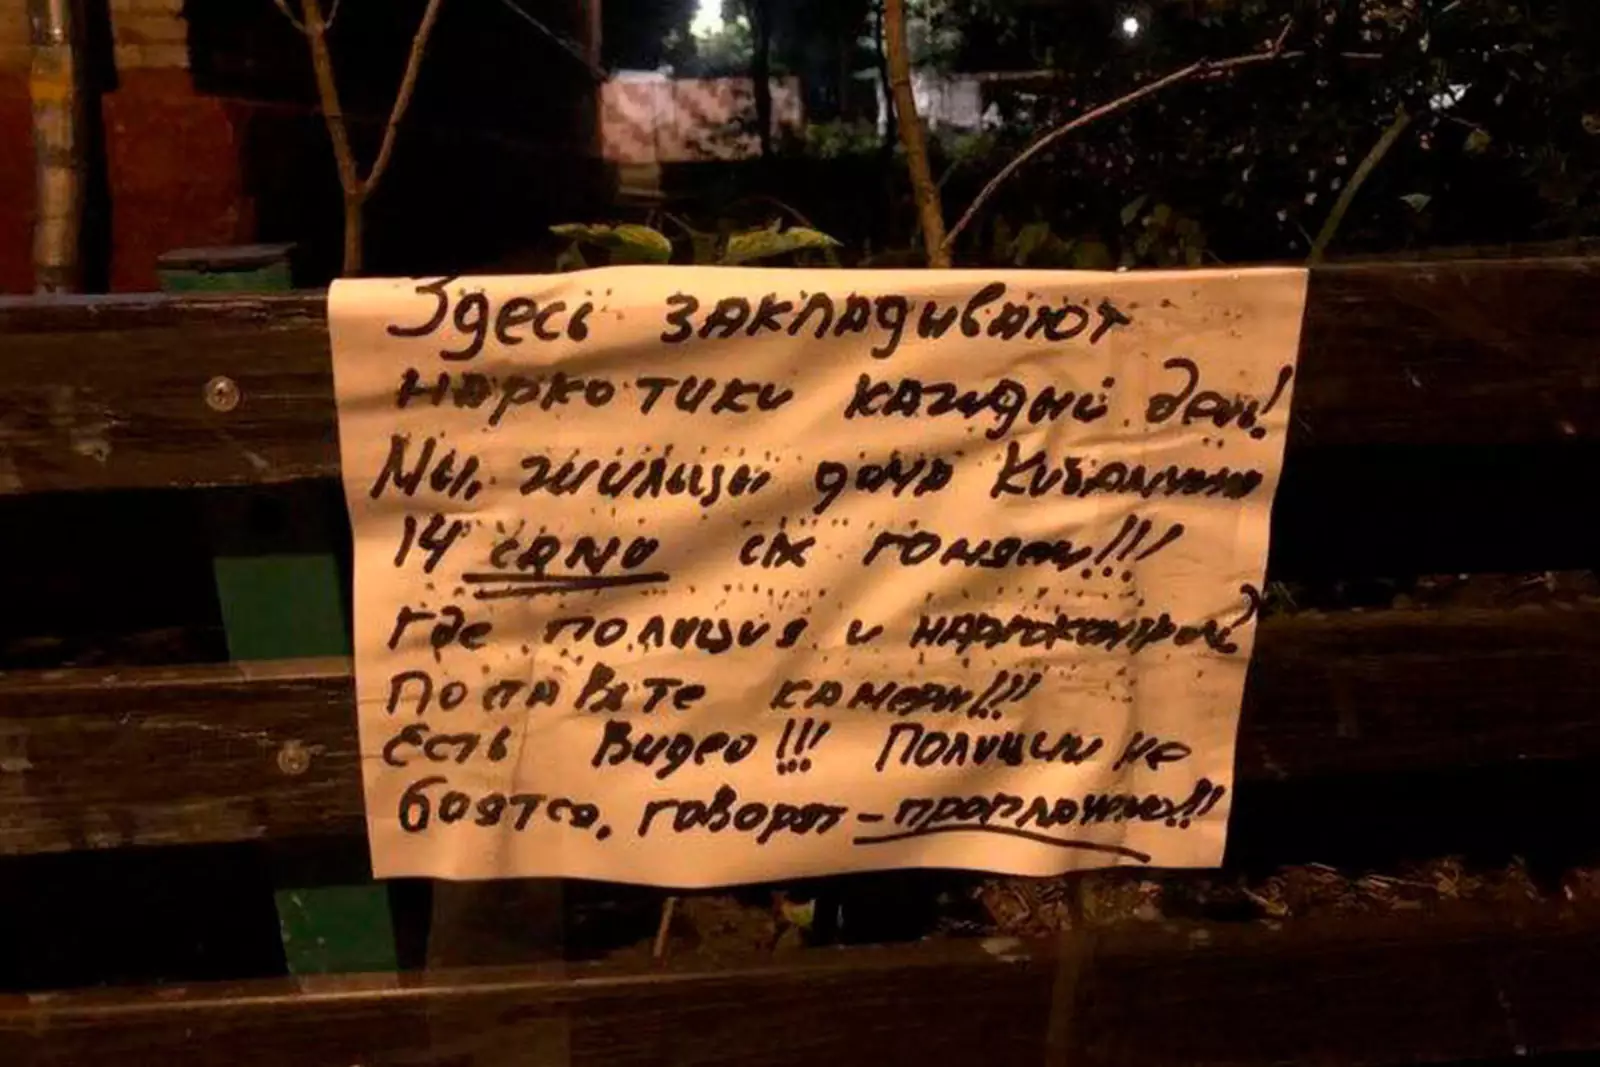 Здесь закладывают
наркотики каждый день!
Мы, жильцы дома Кибальчича
14 сами их гоняем!!!
Где полиция и наркоконтроль?
Поставьте камеры!!!
Есть видео!!! Полиции не
боятся, говорят – проплачено!!!